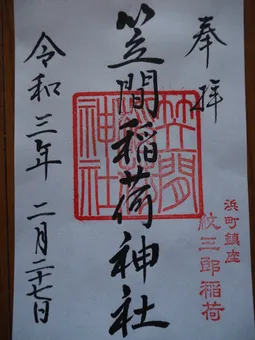 奉拝
浜町鎮座
紋三郎稲荷
笠間稲荷神社
笠間稲荷神社
令和三年二月二十七日